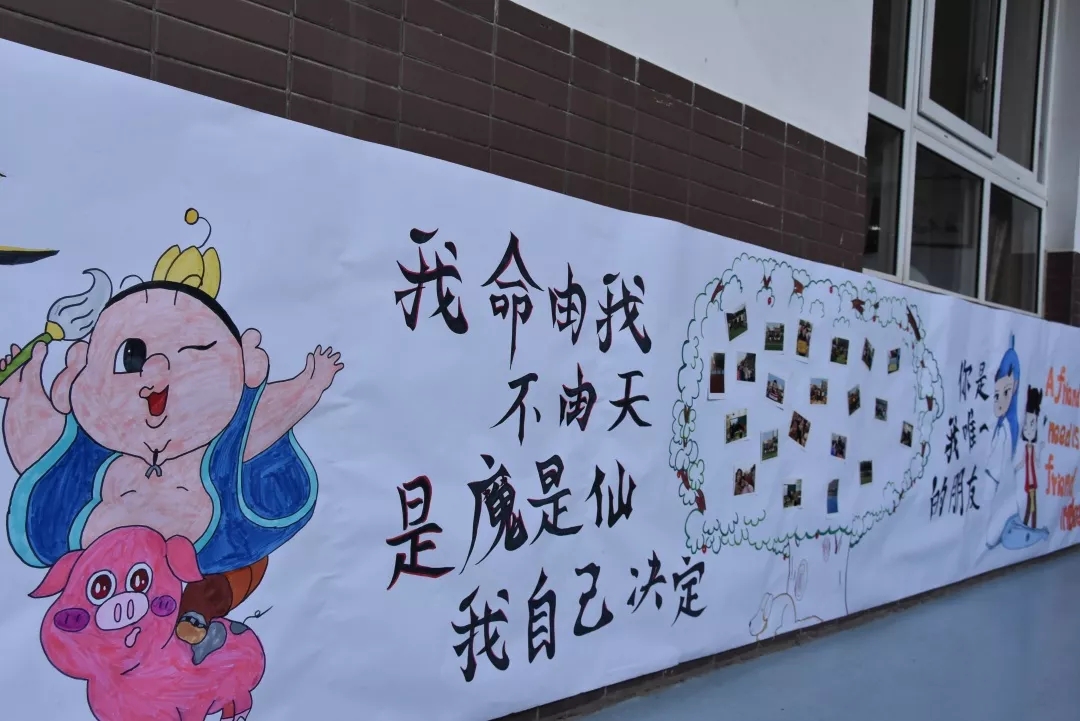 我命由我
不由天
是魔是仙
我自己决定
你是
我唯一
的朋友
A
is